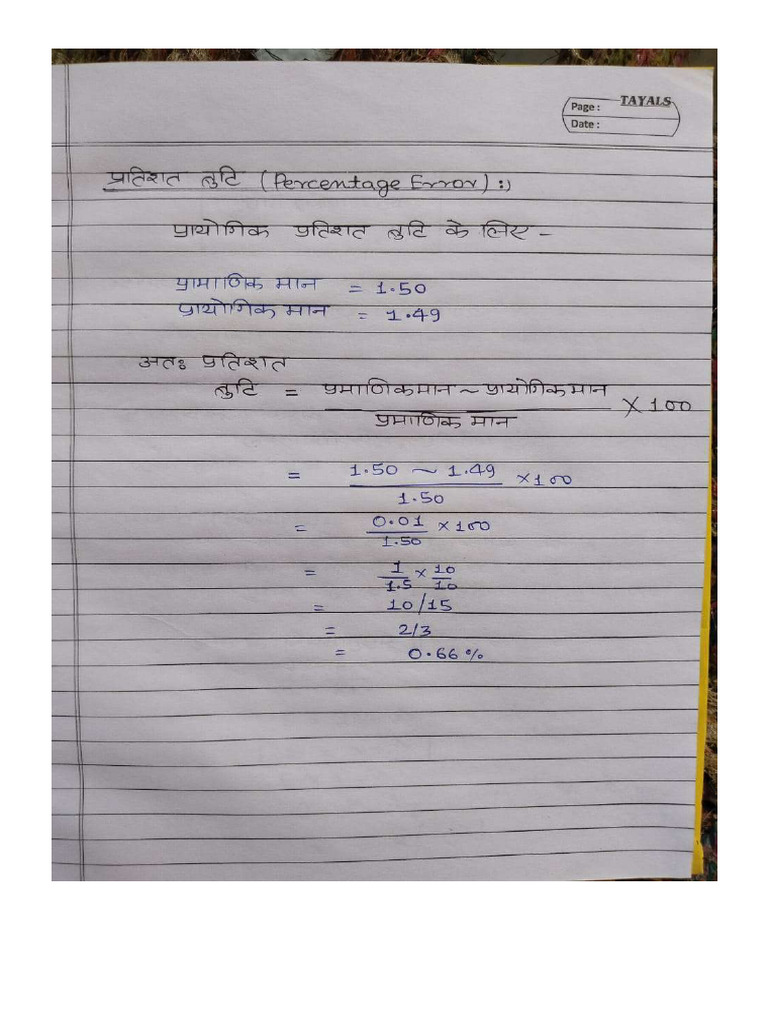 TAYALS
Page :
Date :
प्रतिशत त्रुटि (Percentage Error) :)
प्रायोगिक प्रतिशत त्रुटि के लिए -
प्रामाणिक मान = 1.50
प्रायोगिक मान = 1.49
अतः प्रतिशत
त्रुटि = प्रमाणिक मान ~ प्रायोगिक मान
X 100
प्रमाणिक मान
= 1.50 ~ 1.49 × 100
1.50
= 0.01 × 100
1.50
= 1 × 10
1.5 10
= 10/15
= 2/3
= 0.66 %